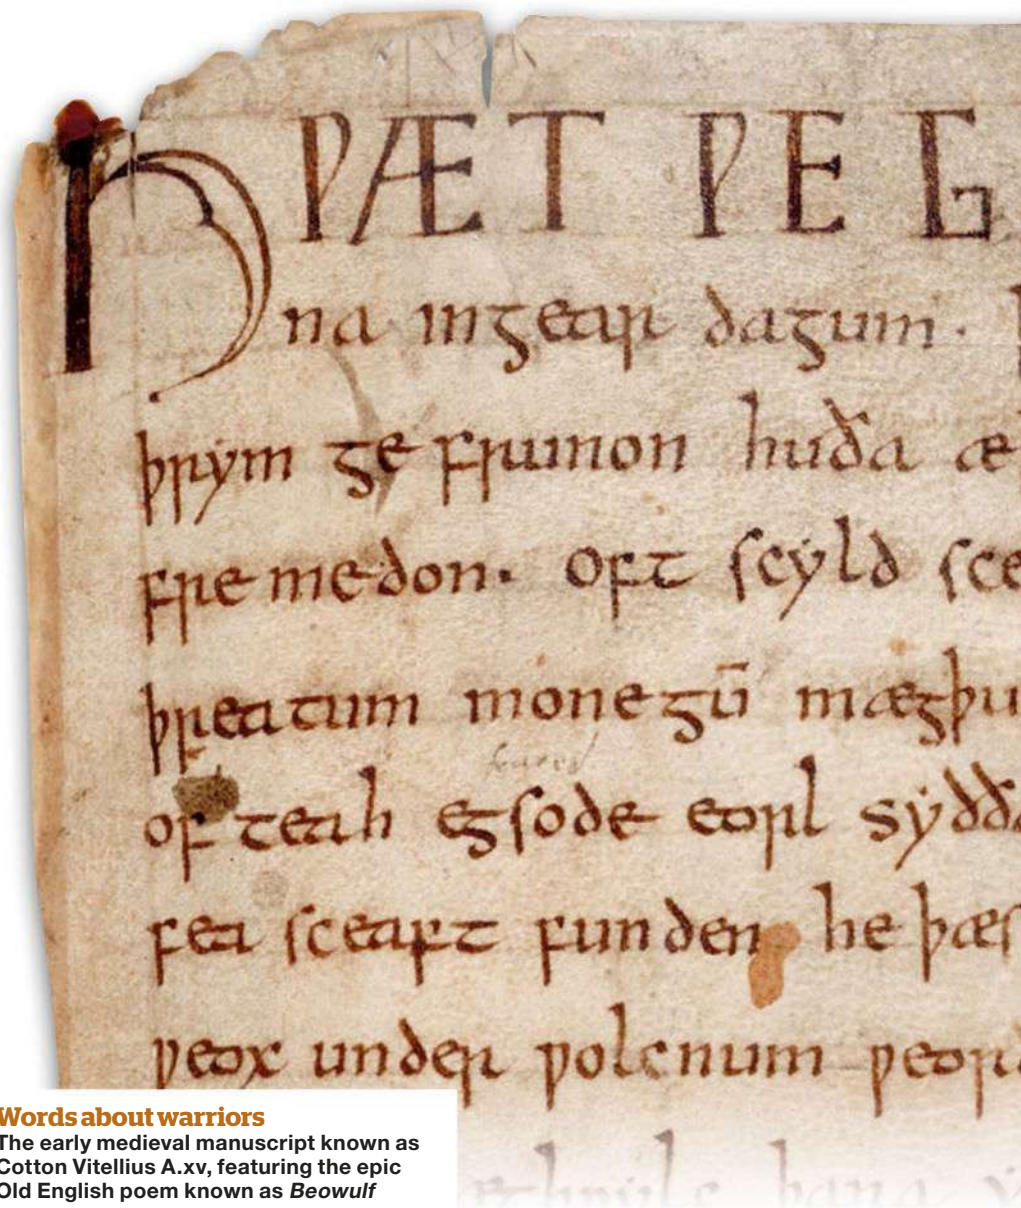 HǷÆT ǷE G
na in gear dagum.
þrym ge frunon huða æ
fre medon. Oft scyld sce
þreatum monegū mægþu
of teah egsode eorl syðða
fea sceaft funden he þæs
ƿeox under ƿolcnum ƿeorð
æghƿylc þara y
Words about warriors
The early medieval manuscript known as
Cotton Vitellius A.xv, featuring the epic
Old English poem known as Beowulf